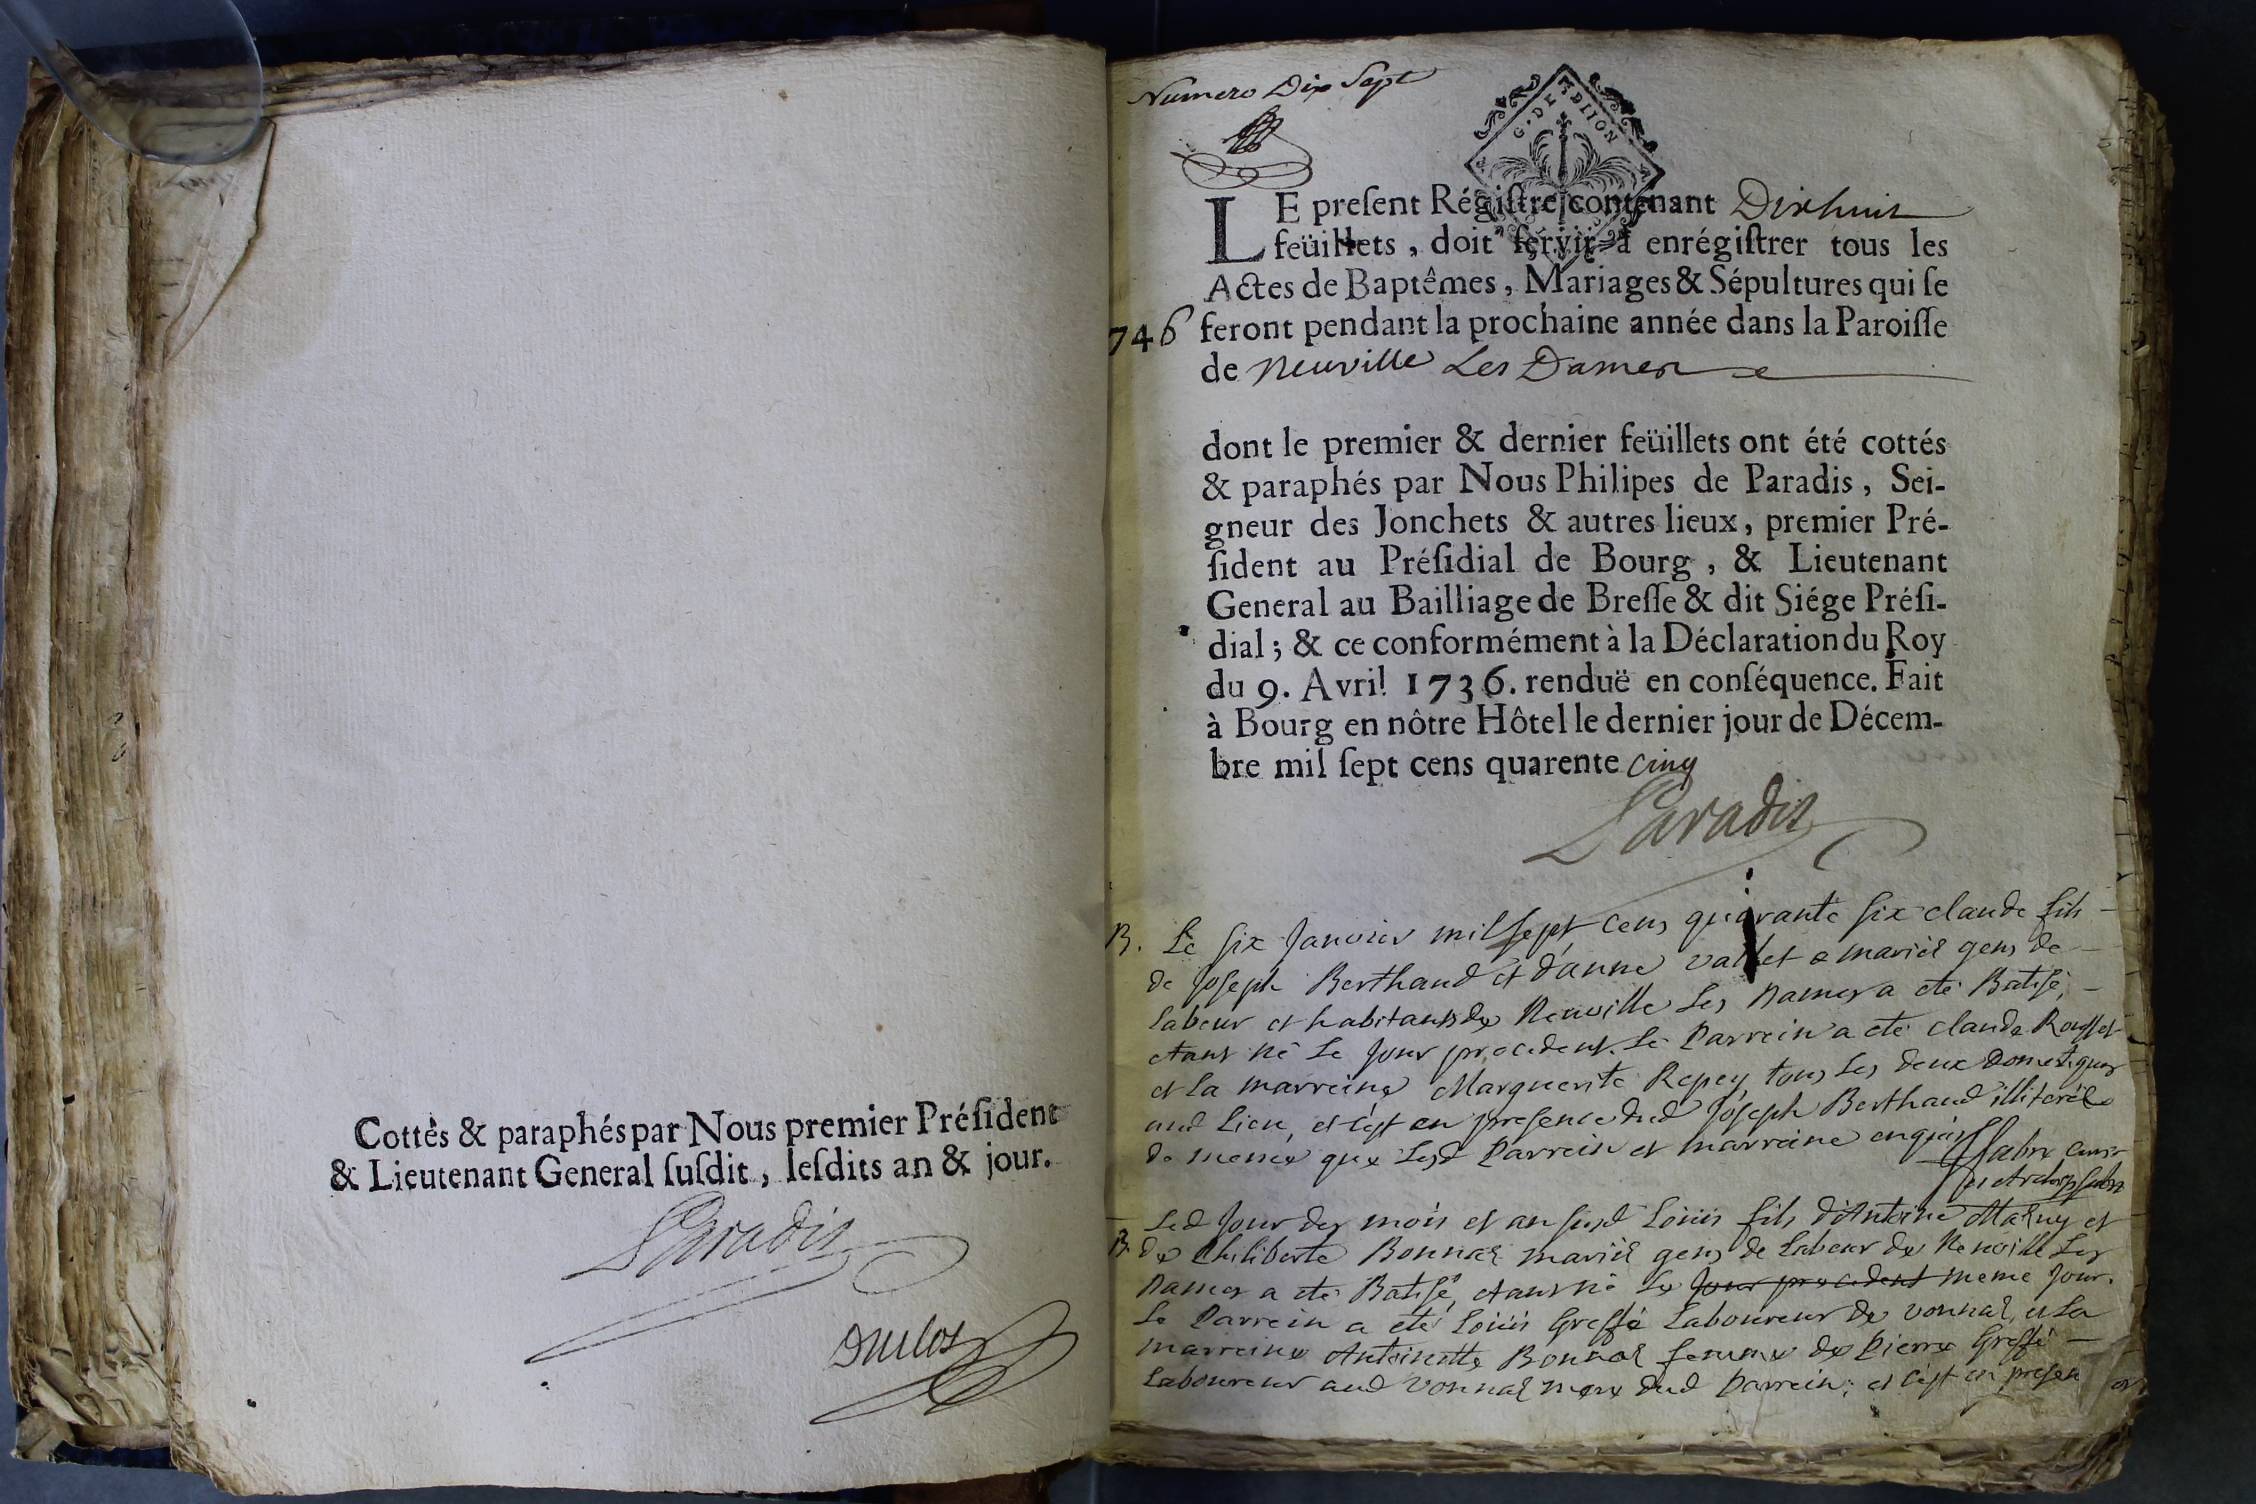 Cottés & paraphés par Nous premier Préſident
& Lieutenant General ſuſdit, leſdits an & jour.
Paradis
Duclos
Numero Dix Sept
G. DE DIION
LE preſent Régiſtre contenant Dixhuit
feüillets, doit ſervir à enrégiſtrer tous les
Actes de Baptêmes, Mariages & Sépultures qui ſe
746 feront pendant la prochaine année dans la Paroiſſe
de Neuville Les Dames
dont le premier & dernier feüillets ont été cottés
& paraphés par Nous Philipes de Paradis, Sei-
gneur des Jonchets & autres lieux, premier Pré-
ſident au Préſidial de Bourg, & Lieutenant
General au Bailliage de Breſſe & dit Siége Préſi-
dial; & ce conformément à la Déclaration du Roy
du 9. Avril 1736. renduë en conſéquence. Fait
à Bourg en nôtre Hôtel le dernier jour de Décem-
bre mil ſept cens quarente cinq
Paradis
B. Le six Janvier mil sept cens quarante six claude fils
de Joseph Berthaud et d'anne vallet mariés gens de
labeur et habitants de Neuville les Dames a eté Batisé,
etant né le Jour precedent. Le Parrein a eté claude Rousset
et la marreine Marguerite Repey tous les deux Domestiques
aud lieu, et c'est en presence dud Joseph Berthaud illiteré
de meme que lesd Parrein et marreine enquis
Led Jour des mois et an susd Loüis fils d'Antoine et
B. de Philiberte Bonnal mariés gens de labeur de Neuville les
Dames a eté Batisé, etant né le Jour precedent meme Jour.
Le Parrein a eté Loüis Greffé Laboureur de vonnas, et la
marreine Antoinette Bonnal femme de Pierre Greffé
Laboureur aud Vonnas mere dud Parrein; et c'est en presen